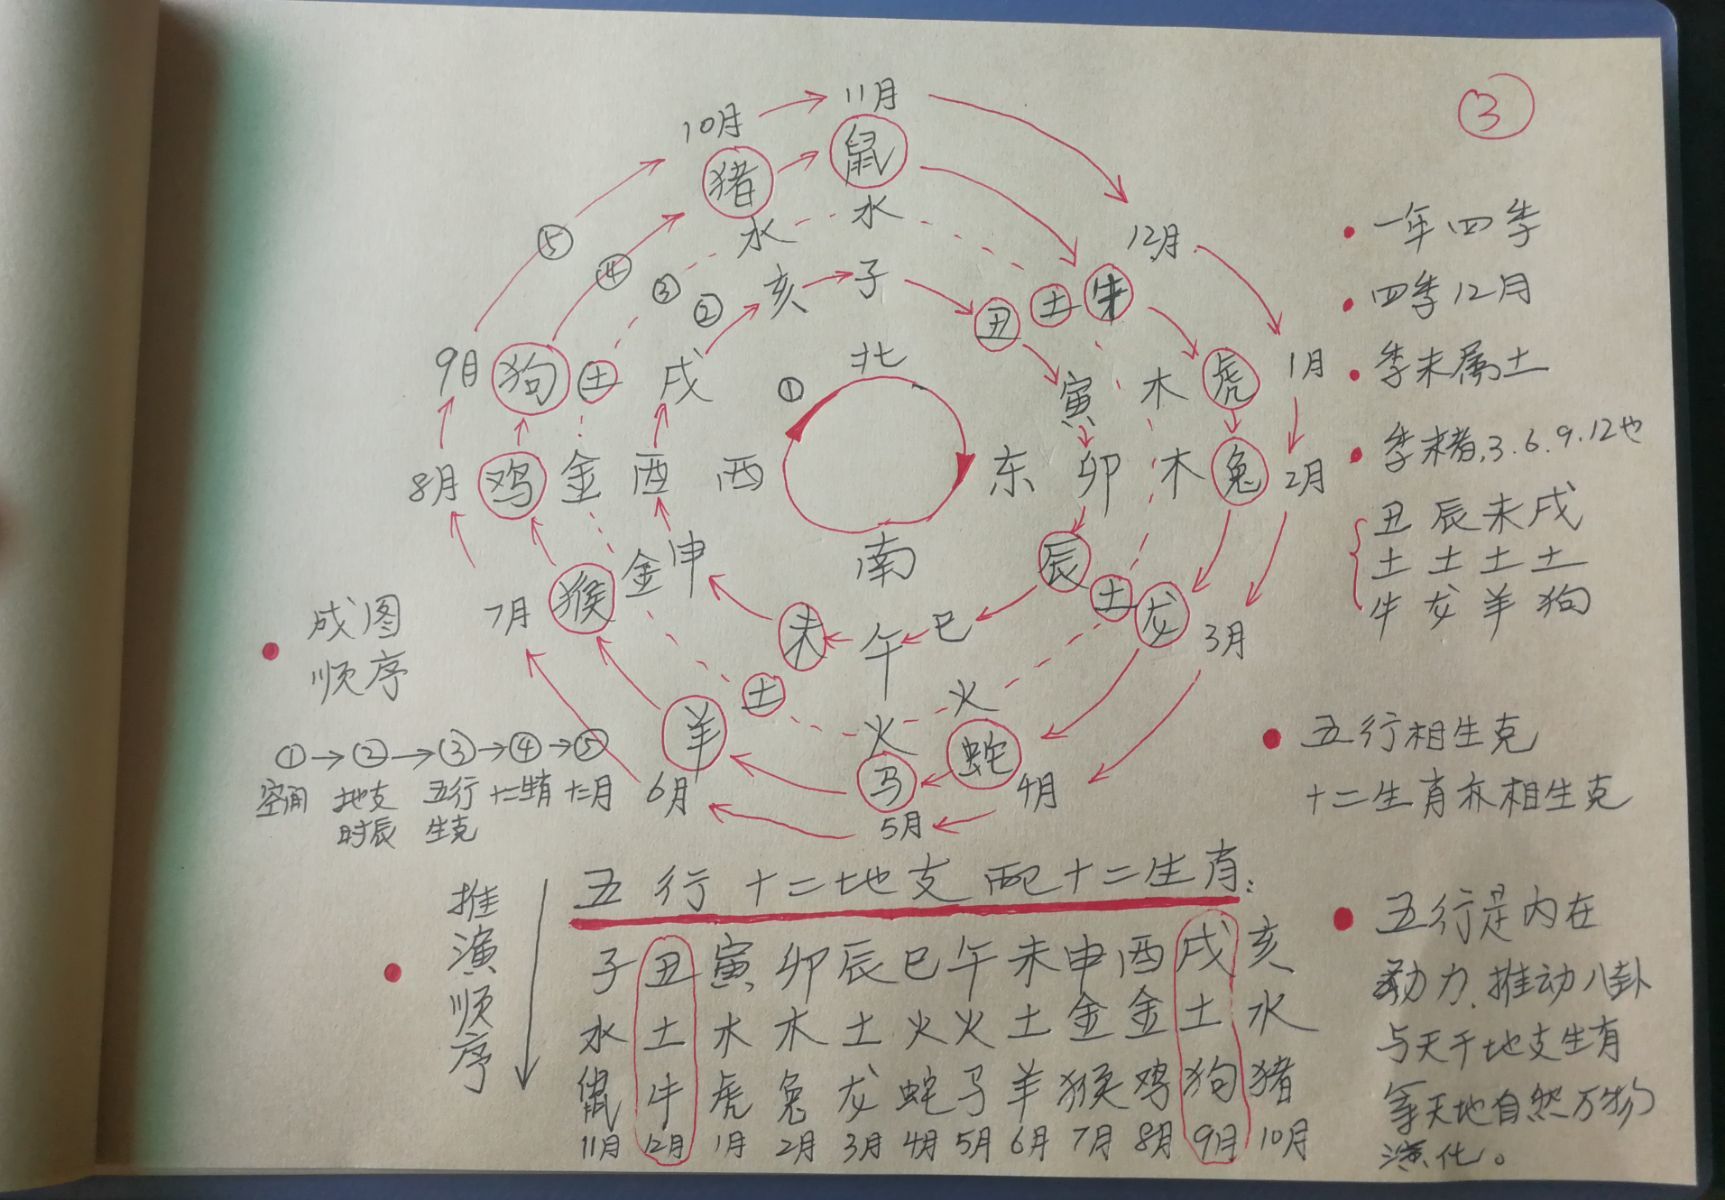 ③
10月
11月
12月
1月
2月
3月
4月
5月
6月
7月
8月
9月
猪
鼠
牛
虎
兔
龙
蛇
马
羊
猴
鸡
狗
水
水
土
木
木
土
火
火
土
金
金
土
亥
子
丑
寅
卯
辰
巳
午
未
申
酉
戌
⑤
④
③
②
①
北
西
东
南
• 一年四季
• 四季12月
• 季末属土
• 季末者,3.6.9.12也
丑 辰 未 戌
土 土 土 土
牛 龙 羊 狗
• 成图
顺序
①→②→③→④→⑤
空间 地支 五行 十二生肖 十二月
时辰 生克
• 五行相生克
十二生肖亦相生克
五行十二地支配十二生肖:
• 推演顺序
子 丑 寅 卯 辰 巳 午 未 申 酉 戌 亥
水 土 木 木 土 火 火 土 金 金 土 水
鼠 牛 虎 兔 龙 蛇 马 羊 猴 鸡 狗 猪
11月 12月 1月 2月 3月 4月 5月 6月 7月 8月 9月 10月
• 五行是内在
动力,推动八卦
与天干地支生肖
等天地自然万物
演化。